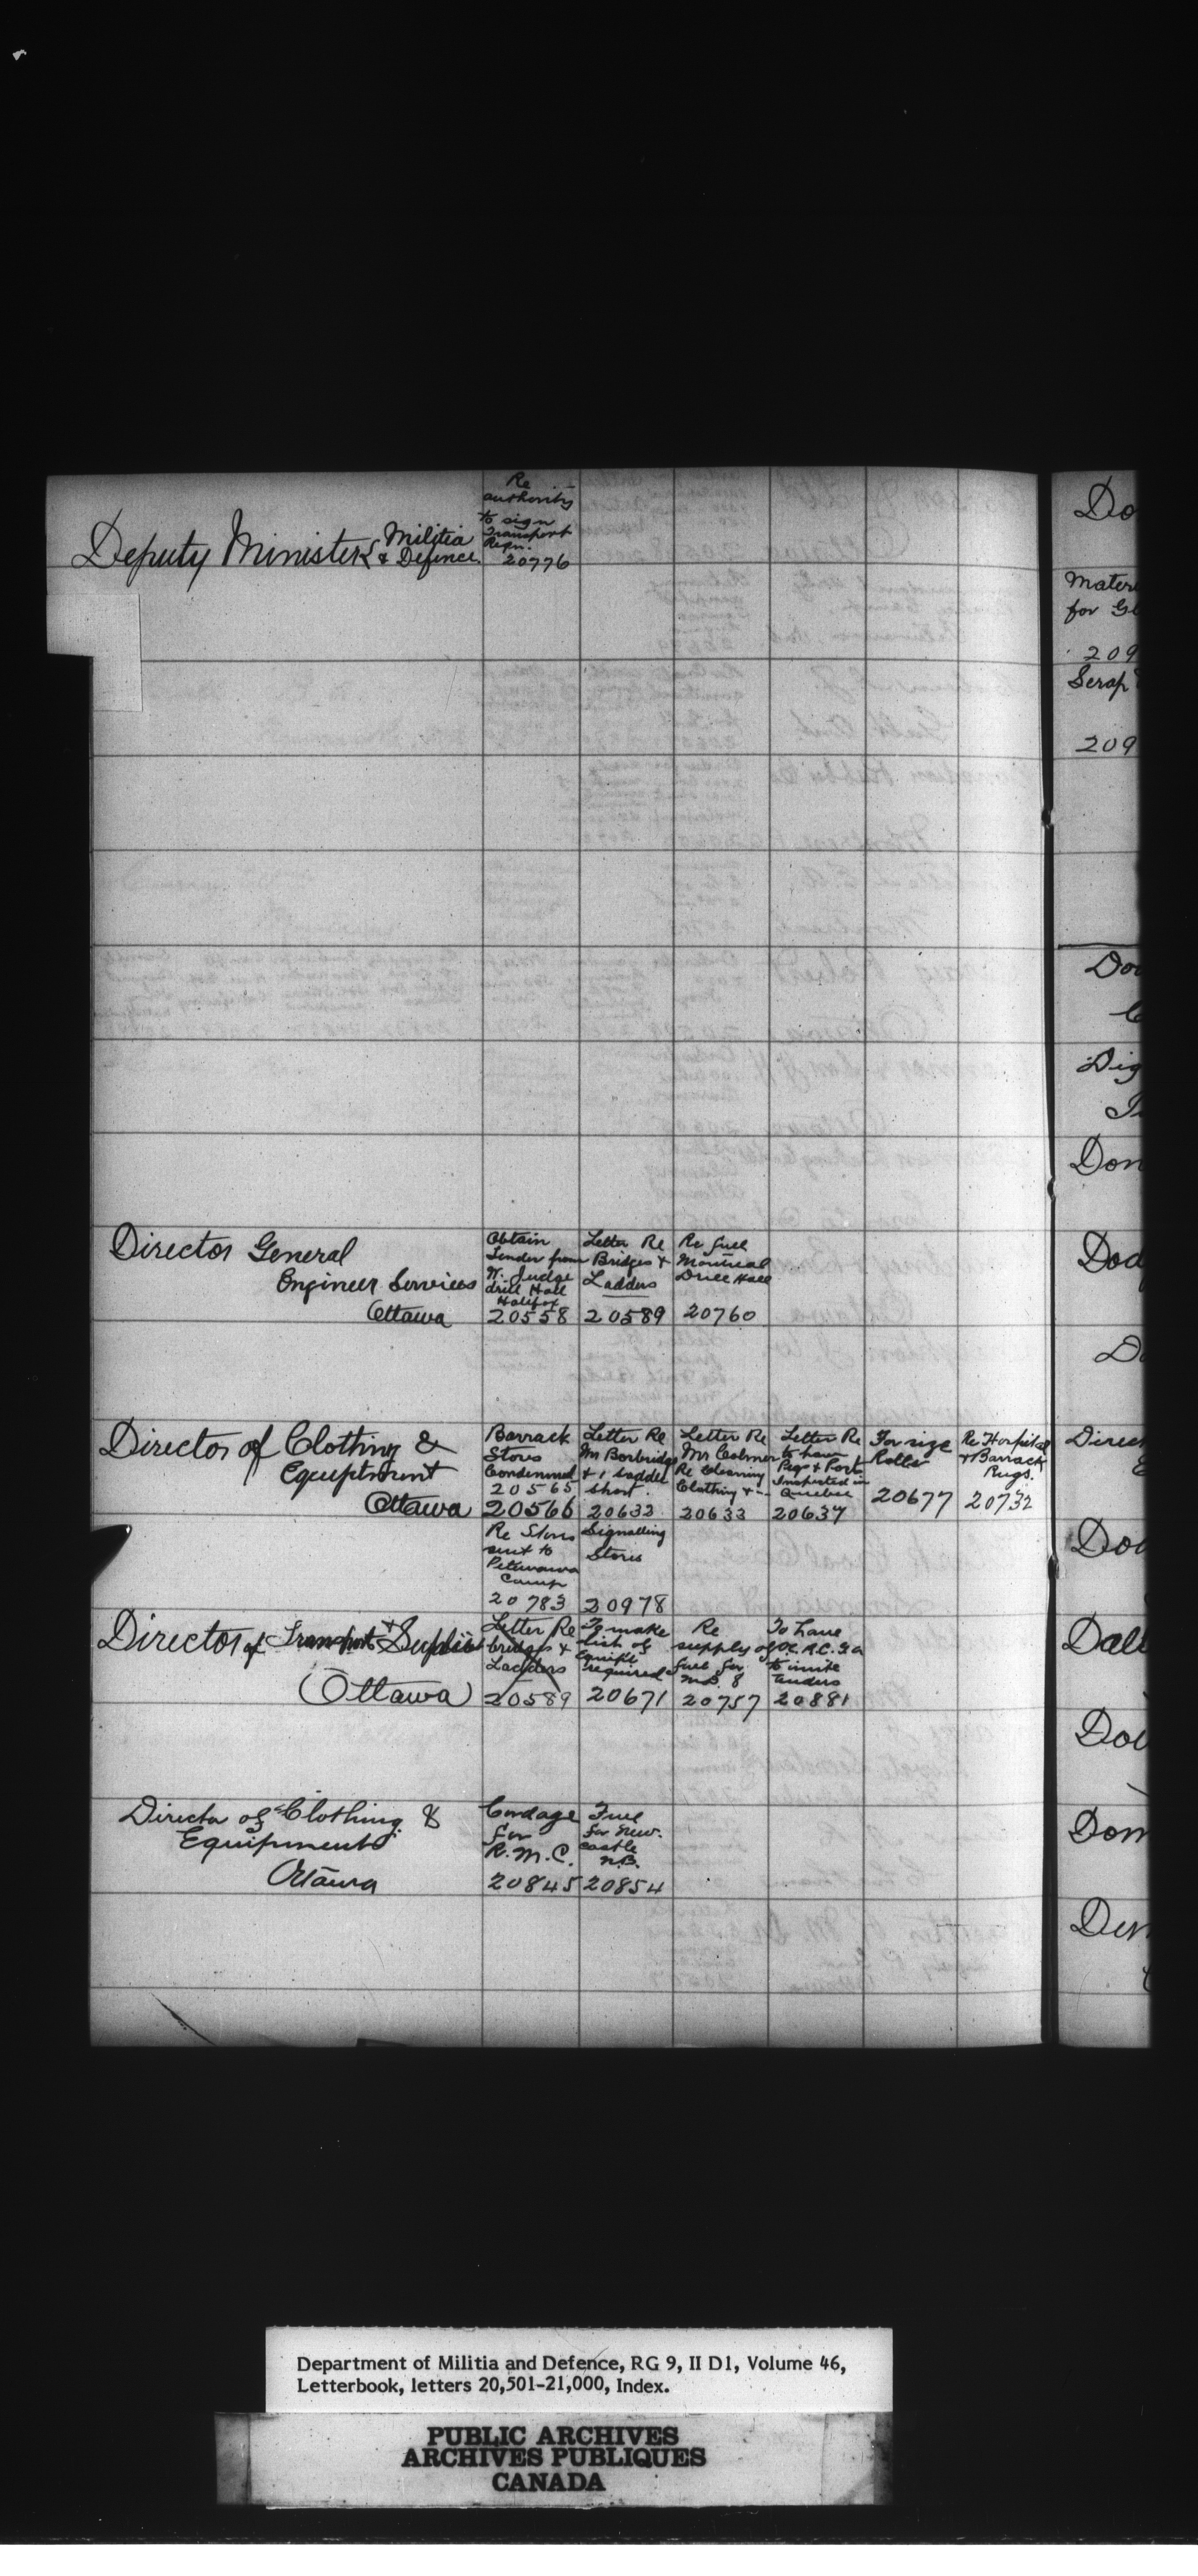 Re
authority
to sign
Transport
Reqn.
Deputy Minister Militia & Defence 20776
Director General
Engineer Services
Ottawa
Obtain
Tender from
W. Judge
drill Hall
Halifax
20558
Letter Re
Bridges &
Ladders
20589
Re fuel
Montreal
Drill Hall
20760
Director of Clothing &
Equiptment
Ottawa
Barrack
Stores
Condemned
20565
20566
Letter Re
Mr Borbridge
& 1 Saddle
short.
20632
Letter Re
Mr Colmer
Re Cleaning
Clothing &--
20633
Letter Re
to have
Pegs & Port
Inspected in
Quebec
20637
For size
Roller
20677
Re Hospital
& Barrack
Rugs.
20732
Re Stores
sent to
Petawawa
Camp
20783
Signalling
Stores
20978
Director of Transport & Supplies
Ottawa
Letter Re
bridges &
Ladders
20589
To make
list of
Equipt
required
20671
Re
supply of
fuel for
M.D. 8
20757
To have
O.C. R.C.G.A
to invite
tenders
20881
Director of Clothing &
Equipment
Ottawa
Cordage
for
R.M.C.
20845
Fuel
for New-
castle
N.B.
20854
Do
Mater
for Gl
209
Scrap
209
Dou
Dig
Don
Dod
Do
Direct
E
Dou
Dall
Dou
Dom
Den
Department of Militia and Defence, RG 9, II D1, Volume 46,
Letterbook, letters 20,501-21,000, Index.
PUBLIC ARCHIVES
ARCHIVES PUBLIQUES
CANADA